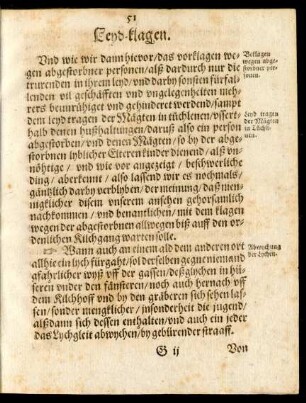 51
Leyd-klagen.
Vnd wie wir dann hievor/das vorklagen we-
gen abgestorbner personen/alß dardurch nur die
trurenden in jhrem leyd/vnd darby sonsten fürfal-
lenden vil geschäfften vnd vngelegenheiten meh-
rers beunrühiget vnd gehinderet werdend/sampt
dem leyd tragen der Mägten in tüchlenen/vssert-
halb denen hußhaltungen/daruß also ein person
abgestorben/vnd denen Mägten/so by der abge-
storbnen lyblicher Elteren kinder dienend/alß vn-
nöhtige/vnd wie vor angezeigt/beschwerliche
ding/aberkennt/also lassend wir es nochmals/
gäntzlich darby verblyben/der meinung/daß men-
nigklicher disem vnserem ansehen gehorsamlich
nachkommen/vnd benantlichen/mit dem klagen
wegen der abgestorbnen allwegen biß auff den or-
denlichen Kilchgang warten solle.
☞ Wann auch an einem ald dem anderen ort
allhie ein lych fürgaht/sol derselben gegne niemand
gfahrlicher wyß vff der gassen/deßglychen in hü-
seren vnder den fänsteren/noch auch hernach vff
dem Kilchhoff vnd by den gräberen sich sehen las-
sen/sonder mengklicher/insonderheit die jugend/
alßdann sich dessen enthalten/vnd auch ein jeder
das Lychgleit abwychen/by gebürender straaff.
G ij Von
wegen abge-
storbner per-
Leyd tragen
der Mägten
Abwychung
der Lychen.